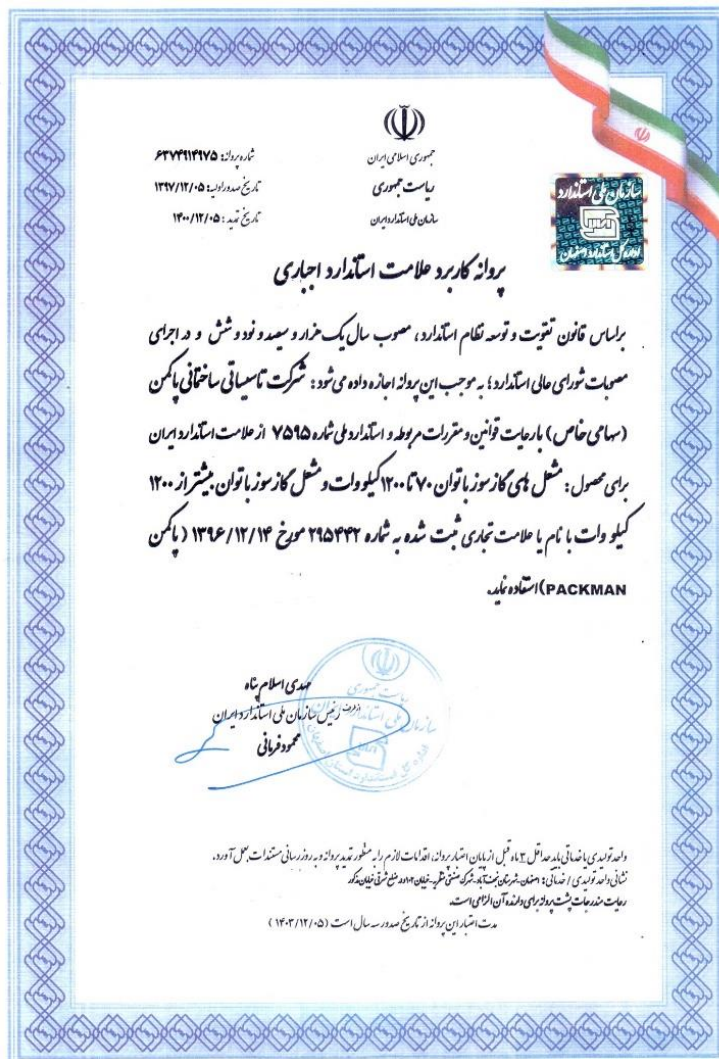 جمهوری اسلامی ایران
ریاست جمهوری
سازمان ملی استاندارد ایران
شماره پروانه: ۶۳۷۴۹۱۴۹۷۵
تاریخ صدور اولیه: ۱۳۹۷/۱۲/۰۵
تاریخ تمدید: ۱۴۰۰/۱۲/۰۵
سازمان ملی استاندارد
اداره کل استاندارد اصفهان
پروانه کاربرد علامت استاندارد اجباری
براساس قانون تقویت و توسعه نظام استاندارد، مصوب سال یک هزار و سیصد و نود و شش و در اجرای
مصوبات شورای عالی استاندارد؛ به موجب این پروانه اجازه داده می شود: شرکت تاسیساتی ساختمانی پاکمن
(سهامی خاص) با رعایت قوانین و مقررات مربوطه و استاندارد ملی شماره ۷۵۹۵ از علامت استاندارد ایران
برای محصول: مشعل های گازسوز با توان ۷۰ تا ۱۲۰۰ کیلو وات و مشعل گازسوز با توان بیشتر از ۱۲۰۰
کیلو وات با نام یا علامت تجاری ثبت شده به شماره ۲۹۵۴۴۲ مورخ ۱۳۹۶/۱۲/۱۴ (پاکمن
PACKMAN) استفاده نماید.
مهدی اسلام پناه
از طرف رئیس سازمان ملی استاندارد ایران
محمود فرمانی
ریاست جمهوری
سازمان ملی استاندارد ایران
اداره کل استاندارد استان اصفهان
واحد تولیدی یا خدماتی باید حداقل ۳ ماه قبل از پایان اعتبار پروانه، اقدامات لازم را به منظور تمدید پروانه و به روز رسانی مستندات بعمل آورد.
نشانی واحد تولیدی / خدماتی: اصفهان-شهرستان نجف آباد-شرکت صنعتی منتظریه-خیابان ضلع شرقی خیابان مذکور
رعایت مندرجات پشت پروانه برای دارنده آن الزامی است.
مدت اعتبار این پروانه از تاریخ صدور سه سال است (۱۴۰۳/۱۲/۰۵)